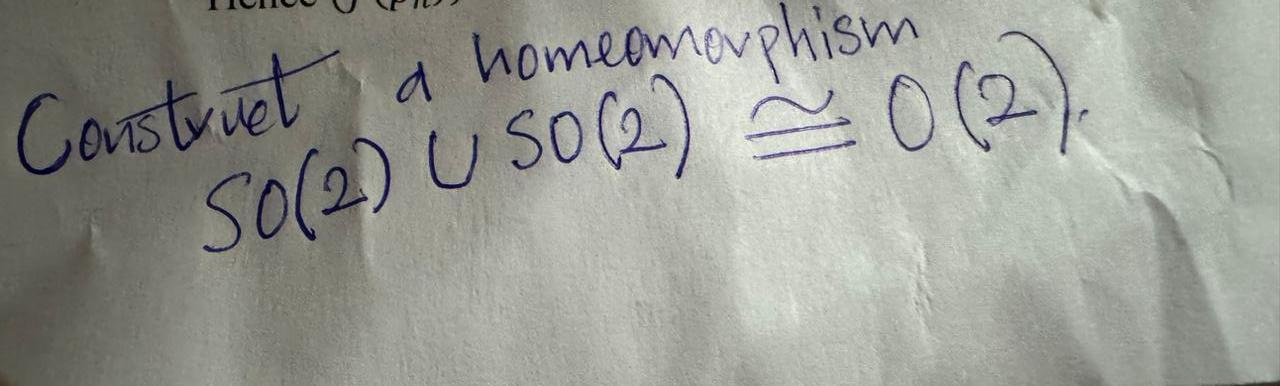 Hence
Construct a homeomorphism
SO(2) ∪ SO(2) ≅ O(2).